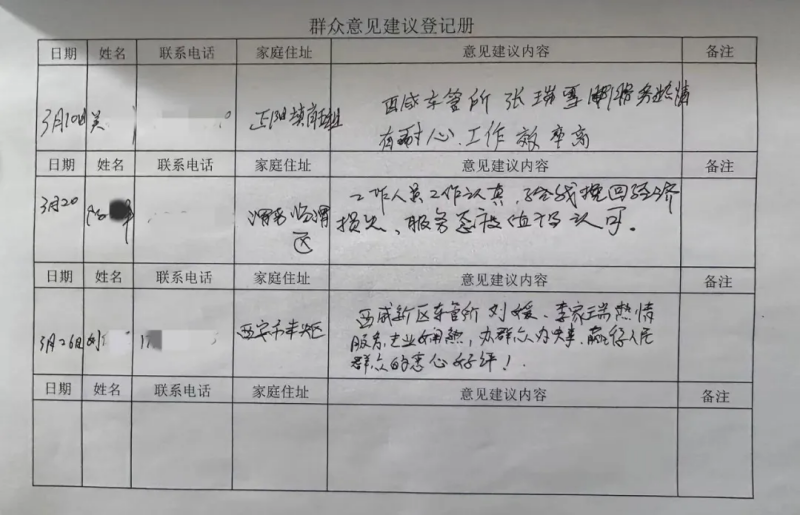 群众意见建议登记册
日期 姓名 联系电话 家庭住址 意见建议内容 备注
3月10日 吴 正阳
西咸车管所 张瑞雪 服务热情
有耐心、工作效率高
日期 姓名 联系电话 家庭住址 意见建议内容 备注
3月20 渭南临渭
区
工作人员工作认真，给我挽回经济
损失、服务态度值得认可。
日期 姓名 联系电话 家庭住址 意见建议内容 备注
3月26日 刘 西安市
西咸新区车管所 刘媛、李家瑞热情
服务，业业娴熟，办群众办实事，赢得人民
群众的衷心好评！
日期 姓名 联系电话 家庭住址 意见建议内容 备注